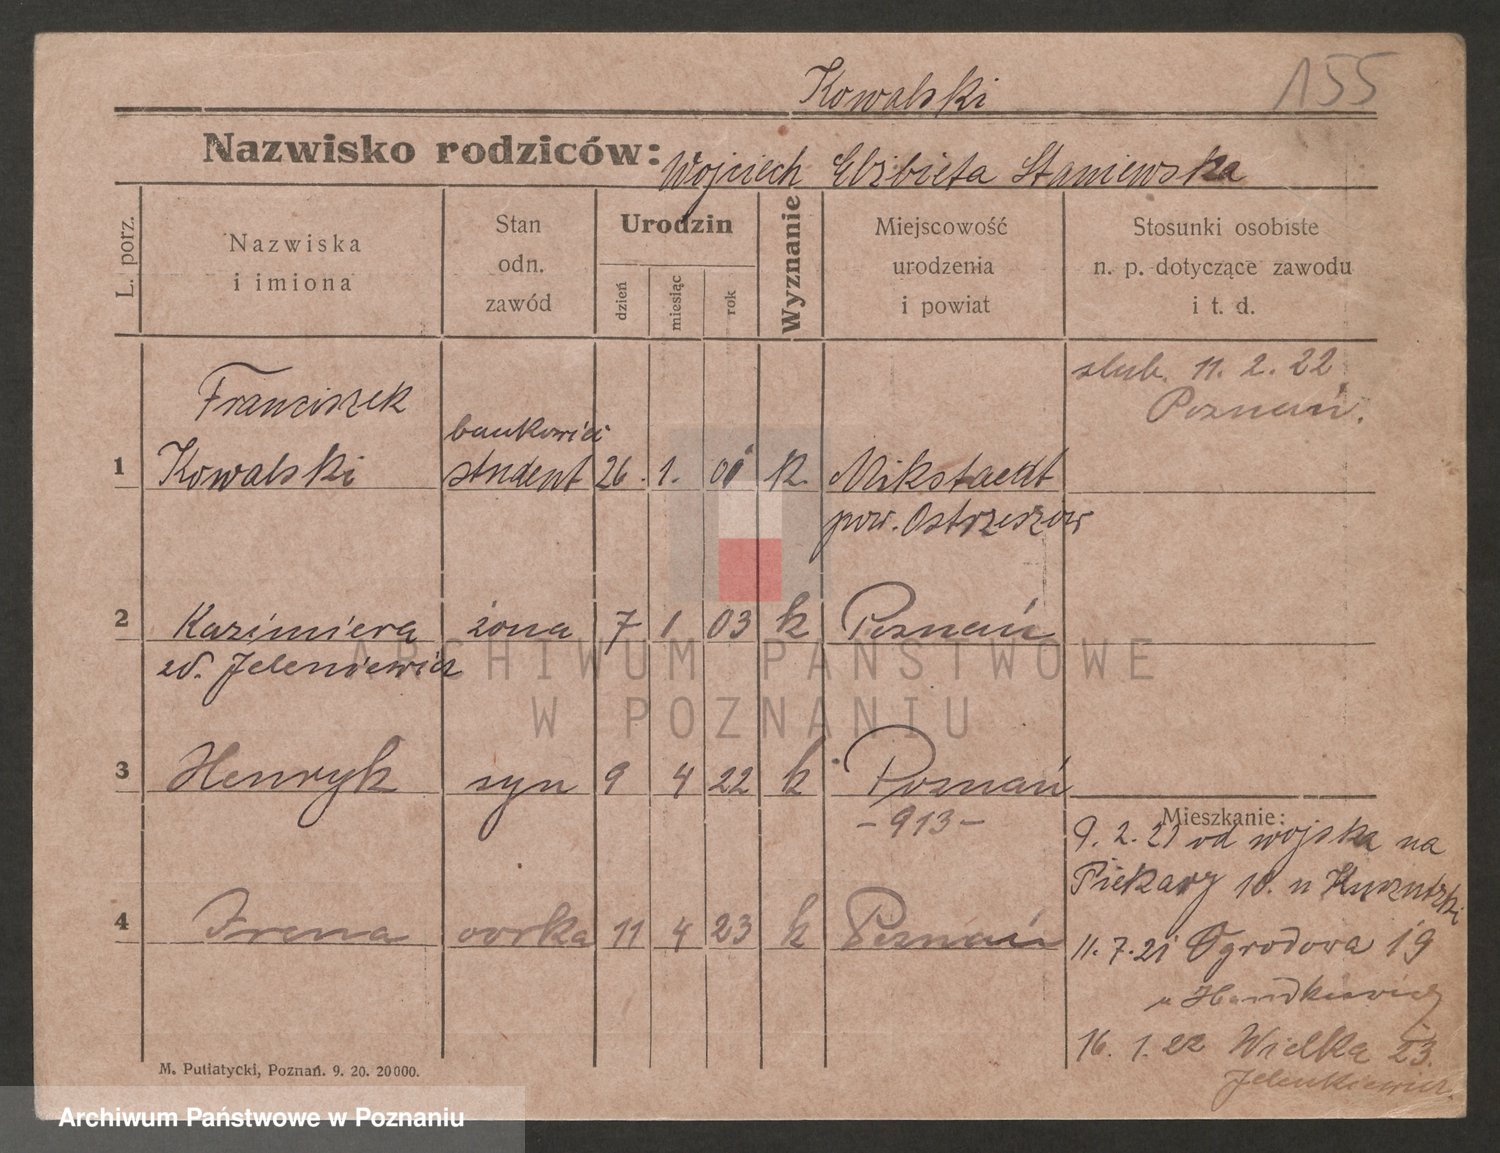 Kowalski 155
Nazwisko rodziców: Wojciech Elżbieta Staniewska
L. porz.
Nazwiska
i imiona
Stan
odn.
zawód
Urodzin
dzień
miesiąc
rok
Wyznanie
Miejscowość
urodzenia
i powiat
Stosunki osobiste
n. p. dotyczące zawodu
i t. d.
ślub. 11. 2. 22
Poznań.
Franciszek
bankowiec
1 Kowalski student 26. 1. k. Mikstaedt
pow. Ostrzeszow
2 Kazimiera żona 7 1 03 k Poznań
zd. Jeleniewicz
3 Henryk syn 9 4 22 k Poznań
- 913 -
4 Irena córka 11 4 23 k Poznań
Mieszkanie:
9. 2. 21 od wojska na
Piekary 10. u
11. 7. 21 Ogrodowa 19
u
16. 1. 22 Wielka 23.
M. Putiatycki, Poznań. 9. 20. 20000.
ARCHIWUM PAŃSTWOWE
W POZNANIU
Archiwum Państwowe w Poznaniu